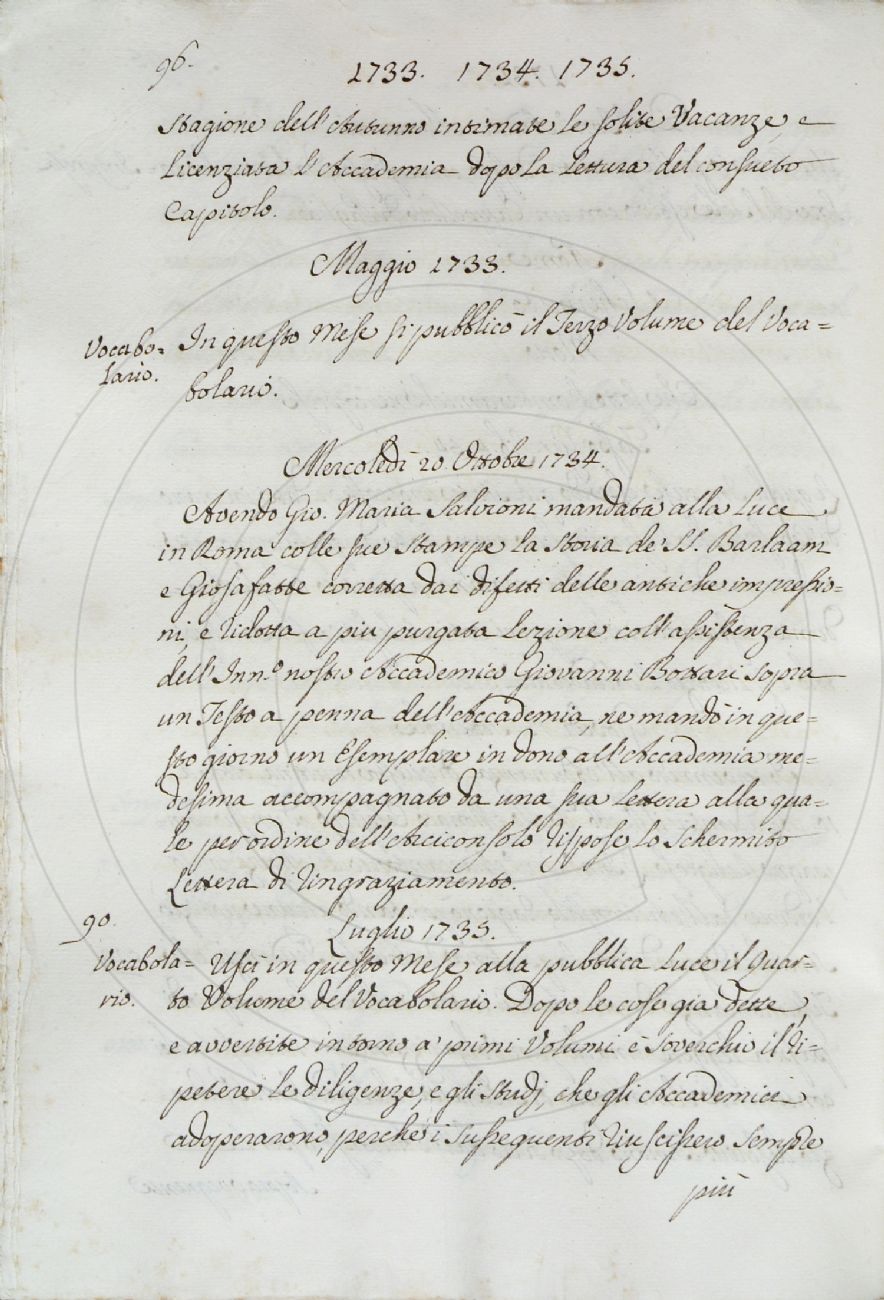 96.
1733. 1734. 1735.
Stagione dell'Autunno intimate le solite Vacanze, e
licenziata l'Accademia dopo la lettura del consueto
Capitolo.
Maggio 1733.
Vocabo=
lario.
In questo Mese si pubblicò il Terzo Volume del Voca=
bolario.
Mercoledì 20. Ottobre 1734.
Avendo Gio. Maria Salvioni mandata alla luce
in Roma colle sue stampe la storia de' SS. Barlaam
e Giosafatte corretta dai difetti delle antiche impressio=
ni, e ridotta a più purgata lezione coll'assistenza
dell'Inn.º nostro Accademico Giovanni Bottari sopra
un Testo a penna dell'Accademia, ne mandò in que=
sto giorno un Esemplare in dono all'Accademia me=
desima accompagnato da una sua lettera alla qua=
le per ordine dell'Arciconsolo rispose lo Schermito
Lettera di ringraziamento.
90.
Luglio 1735.
Vocabola=
rio.
Uscì in questo Mese alla pubblica luce il Quar=
to Volume del Vocabolario. Dopo le cose già dette,
e avvertite intorno a' primi Volumi è soverchio il ri=
petere le diligenze, e gli studj, che gli Accademici
adoperarono, perchè i susseguenti riuscissero sempre
più